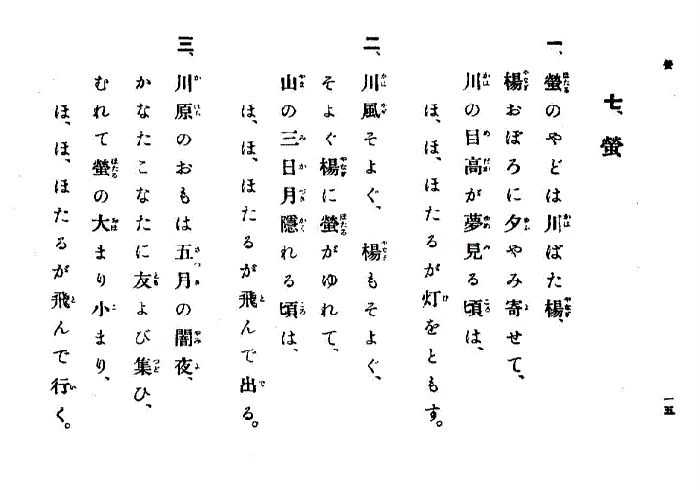 螢
七、螢
一、螢のやどは川ばた楊、
楊おぼろに夕やみ寄せて、
川の目高が夢見る頃は、
ほ、ほ、ほたるが灯をともす。
二、川風そよぐ、楊もそよぐ、
そよぐ楊に螢がゆれて、
山の三日月隱れる頃は、
ほ、ほ、ほたるが飛んで出る。
三、川原のおもは五月の闇夜、
かなたこなたに友よび集ひ、
むれて螢の大まり小まり、
ほ、ほ、ほたるが飛んで行く。
一五